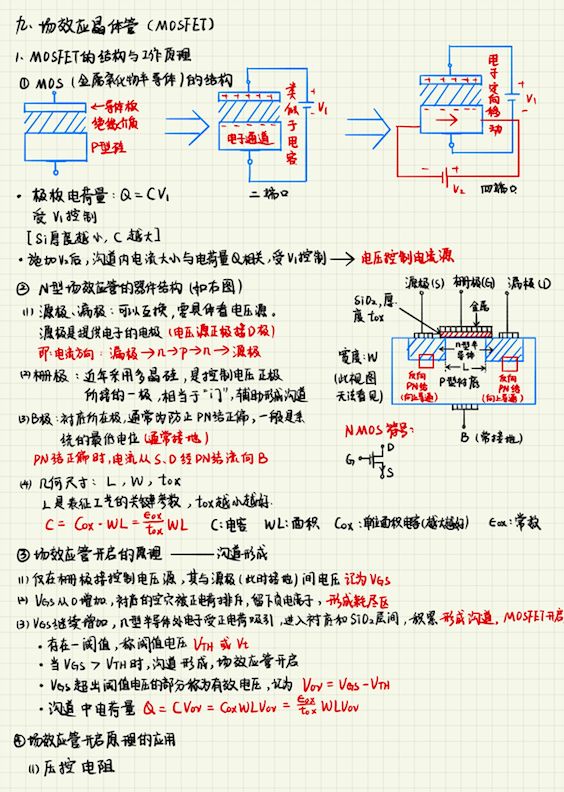 九、场效应晶体管（MOSFET）
1. MOSFET的结构与工作原理
① MOS（金属氧化物半导体）的结构
←导体板
绝缘介质
P型硅
电子通道
类似于电容
V1
二端口
电子定向移动
V1
V2
四端口
· 极板电荷量：Q=CV1
受V1控制
[Si厚度越小，C越大]
· 施加V2后，沟道内电流大小与电荷量Q相关，受V1控制 → 电压控制电流源
② N型场效应管的器件结构（如右图）
(1) 源极、漏极：可以互换，需具体看电压源。
源极是提供电子的电极（电压源正极接D极）
即：电流方向：漏极→n→P→n→源极
(2) 栅极：近年采用多晶硅，是控制电压正极
所接的一极，相当于“门”，辅助形成沟道
(3) B极：衬底所在极，通常为防止PN结正偏，一般是系
统的最低电位（通常接地）
PN结正偏时，电流从S、D经PN结流向B
源极(S) 栅极(G) 漏极(D)
SiO2，厚
度tox
金属
n型半
导体
宽度：W
（此视图
无法看见）
L
P型衬底
反向
PN结
（向上导通）
反向
PN结
（向上导通）
B（常接地）
NMOS符号：
G
D
S
(4) 几何尺寸：L，W，tox
L是表征工艺的关键参数，tox越小越好.
C = Cox·WL = εox/tox WL C：电容 WL：面积 Cox：单位面积电容（越大越好） εox：常数
③ 场效应管开启的原理 —— 沟道形成
(1) 仅在栅极接控制电压源，其与源极（此时接地）间电压记为VGS
(2) VGS从0增加，衬底的空穴被正电荷排斥，留下负电离子，形成耗尽区
(3) VGS继续增加，n型半导体处电子受正电荷吸引，进入衬底和SiO2层间，积累形成沟道，MOSFET开启
· 存在一阈值，称阈值电压 VTH 或 Vt
· 当VGS > VTH时，沟道形成，场效应管开启
· VGS超出阈值电压的部分称为有效电压，记为 Vov = VGS - VTH
· 沟道中电荷量 Q = CVov = CoxWLVov = εox/tox WLVov
④ 场效应管开启原理的应用
(1) 压控电阻